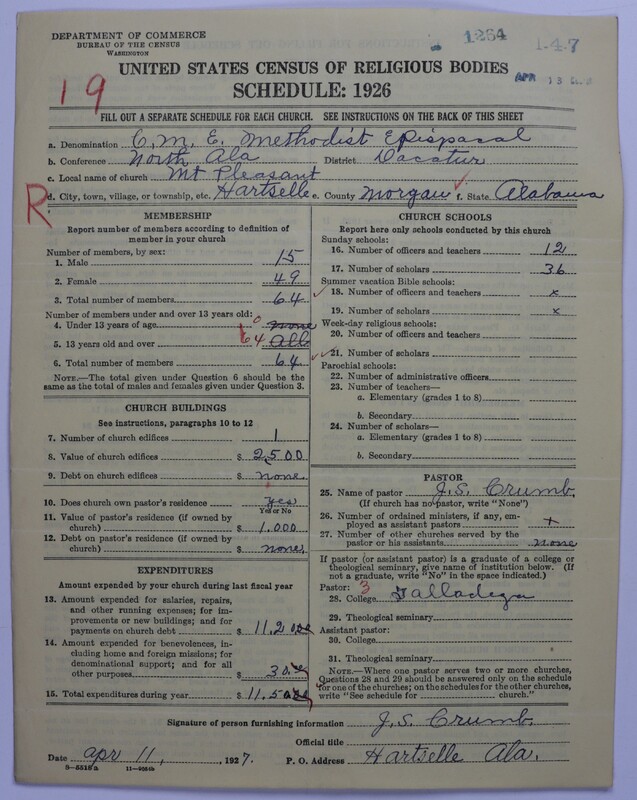 DEPARTMENT OF COMMERCE
BUREAU OF THE CENSUS
WASHINGTON
1264
1-4-7
UNITED STATES CENSUS OF RELIGIOUS BODIES
APR 13
SCHEDULE: 1926
19
FILL OUT A SEPARATE SCHEDULE FOR EACH CHURCH. SEE INSTRUCTIONS ON THE BACK OF THIS SHEET
a. Denomination C. M. E. Methodist Epispacal
b. Conference North Ala District Dacatur
c. Local name of church Mt Pleasant
R d. City, town, village, or township, etc. Hartselle e. County Morgan f. State Alabama
MEMBERSHIP
Report number of members according to definition of
member in your church
Number of members, by sex:
1. Male 15
2. Female 49
3. Total number of members 64
Number of members under and over 13 years old:
4. Under 13 years of age 0 none
5. 13 years old and over 64 All
6. Total number of members 64
NOTE.—The total given under Question 6 should be
the same as the total of males and females given under Question 3.
CHURCH BUILDINGS
See instructions, paragraphs 10 to 12
7. Number of church edifices 1
8. Value of church edifices $ 2,500
9. Debt on church edifices $ none
10. Does church own pastor's residence Yes
Yes or No
11. Value of pastor's residence (if owned by
church) $ 1.000
12. Debt on pastor's residence (if owned by
church) $ none
EXPENDITURES
Amount expended by your church during last fiscal year
13. Amount expended for salaries, repairs,
and other running expenses; for im-
provements or new buildings; and for
payments on church debt $ 11,2
14. Amount expended for benevolences, in-
cluding home and foreign missions; for
denominational support; and for all
other purposes $ 30.
15. Total expenditures during year $ 11,5
CHURCH SCHOOLS
Report here only schools conducted by this church
Sunday schools:
16. Number of officers and teachers 12
17. Number of scholars 36
Summer vacation Bible schools:
18. Number of officers and teachers x
19. Number of scholars x
Week-day religious schools:
20. Number of officers and teachers
21. Number of scholars
Parochial schools:
22. Number of administrative officers
23. Number of teachers—
a. Elementary (grades 1 to 8)
b. Secondary
24. Number of scholars—
a. Elementary (grades 1 to 8)
b. Secondary
PASTOR
25. Name of pastor J. S. Crumb.
(If church has no pastor, write "None")
26. Number of ordained ministers, if any, em-
ployed as assistant pastors +
27. Number of other churches served by the
pastor or his assistants none
If pastor (or assistant pastor) is a graduate of a college or
theological seminary, give name of institution below. (If
not a graduate, write "No" in the space indicated.)
Pastor: 3
28. College Talladega
29. Theological seminary
Assistant pastor:
30. College
31. Theological seminary
NOTE.—Where one pastor serves two or more churches,
Questions 28 and 29 should be answered only on the schedule
for one of the churches; on the schedules for the other churches,
write "See schedule for church."
Signature of person furnishing information J. S. Crumb.
Official title
Date apr 11, 1927. P. O. Address Hartselle Ala.